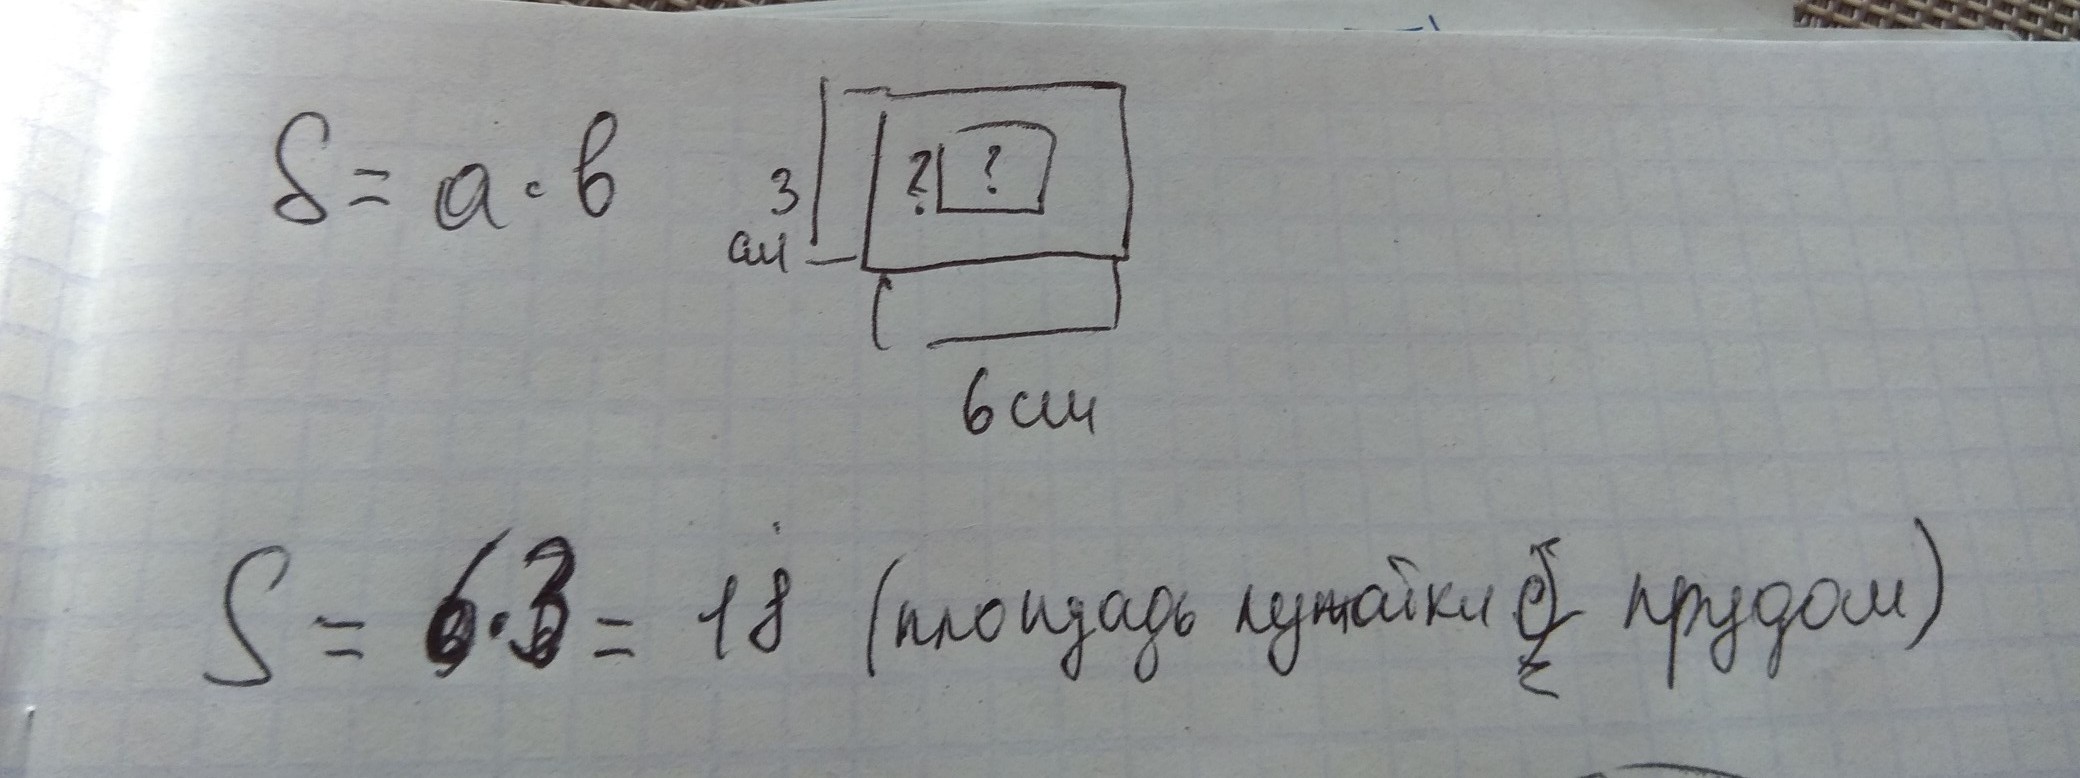 S = a · b
3
см
? ?
6 см
S = 6·3 = 18 (площадь лужайки с прудом)